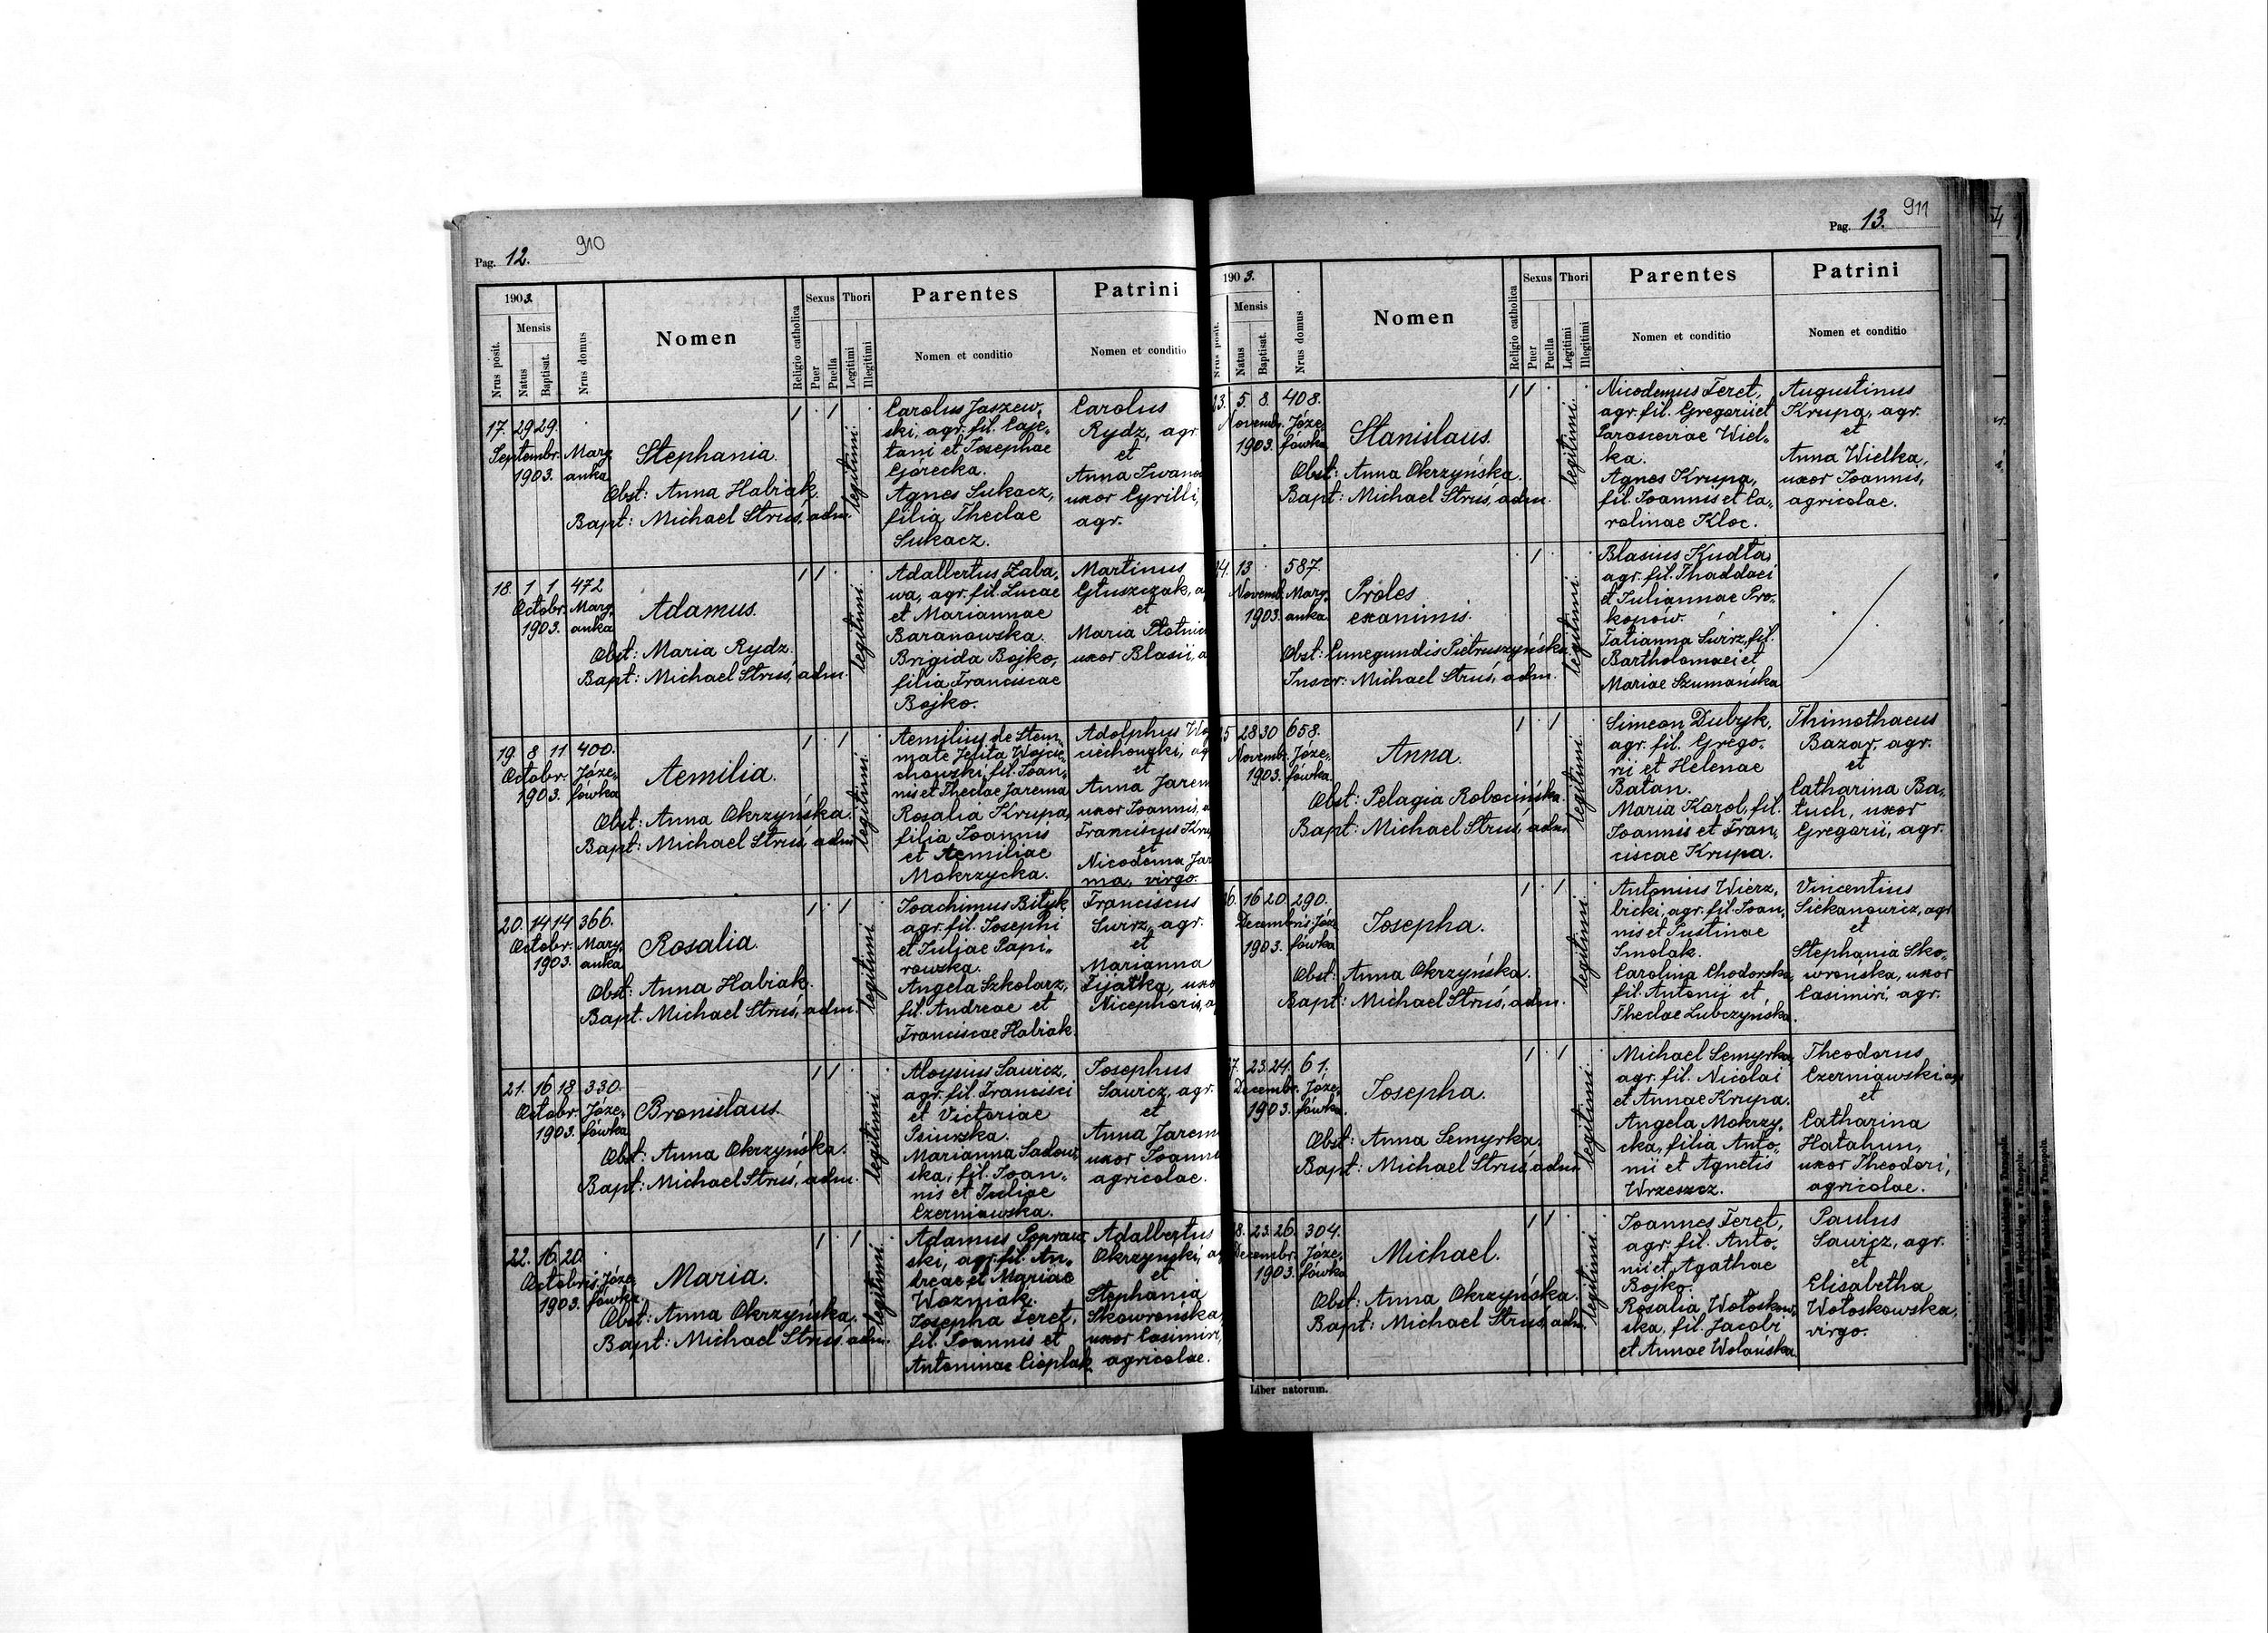 Pag. 12.
910
1903.
Mensis
Nrus posit.
Natus
Baptisat.
Nrus domus
Nomen
Religio catholica
Sexus
Puer
Puella
Thori
Legitimi
Illegitimi
Parentes
Nomen et conditio
Patrini
Nomen et conditio
17. 29 29.
Septembr.
1903.
Mary,
anka
Stephania.
Obst: Anna Habiak.
Bapt: Michael Struś, adm.
legitimi.
Carolus Jaszew,
ski, agr. fil. Caje,
tani et Josephae
Górecka.
Agnes Sukacz,
filia Theclae
Sukacz.
Carolus
Rydz, agr
et
Anna Iwano
uxor Cyrilli,
agr.
18. 1 1
Octobr.
1903.
472
Mary,
anka
Adamus.
Obst: Maria Rydz.
Bapt: Michael Struś, adm.
legitimi.
Adalbertus Zaba,
wa, agr. fil. Lucae
et Mariannae
Baranowska.
Brigida Bojko,
filia Franciscae
Bojko.
Martinus
Głuszczak, a
et
Maria Płotnic
uxor Blasii, a
19. 8 11
Octobr.
1903.
400.
Józe,
fówka
Aemilia.
Obst: Anna Okrzyńska.
Bapt: Michael Struś, adm.
legitimi.
Aemilius de Stem,
mate Jelita Wojcie,
chowski, fil. Joan,
nis et Theclae Jarema
Rosalia Krupa,
filia Joannis
et Aemiliae
Mokrzycka.
Adolphus Wo
ciechowski, ag
et
Anna Jarem
uxor Joannis, a
Franciscus Kru
et
Nicodema Jar
ma, virgo.
20. 14 14
Octobr.
1903.
366.
Mary,
anka
Rosalia.
Obst: Anna Habiak.
Bapt. Michael Struś, adm.
legitimi
Joachimus Bityk
agr. fil. Josephi
et Juliae Papi,
rowska.
Angela Szkolarz,
fil. Andreae et
Franciscae Habiak.
Franciscus
Swirz, agr.
et
Marianna
Fijałka, uxo
Nicephoris, a
21. 16 18
Octobr.
1903.
330.
Józe,
fówka
Bronislaus.
Obst: Anna Okrzyńska.
Bapt: Michael Struś, adm.
legitimi.
Aloysius Sawicz,
agr. fil. Francisci
et Victoriae
Psiurska.
Marianna Sadow,
ska, fil. Joan,
nis et Juliae
Czerniawska.
Josephus
Sawicz, agr.
et
Anna Jarem
uxor Joannis
agricolae.
22. 16. 20.
Octobris.
1903.
Józe,
fówka.
Maria.
Obst: Anna Okrzyńska.
Bapt: Michael Struś, adm.
legitimi.
Adamus Popraw
ski, agr. fil. An,
dreae et Mariae
Wozniak.
Josepha Feret,
fil. Joannis et
Antoninae Cieplak
Adalbertus
Okrzynski, ag
et
Stephania
Skowrońska,
uxor Casimiri,
agricolae.
Pag. 13.
911
1903.
Mensis
Nrus posit.
Natus
Baptisat.
Nrus domus
Nomen
Religio catholica
Sexus
Puer
Puella
Thori
Legitimi
Illegitimi
Parentes
Nomen et conditio
Patrini
Nomen et conditio
23. 5. 8.
Novemb.
1903.
408.
Józe
fówka
Stanislaus.
Obst: Anna Okrzyńska.
Bapt: Michael Struś, adm.
legitimi.
Nicodemus Feret,
agr. fil. Gregorii et
Parasceviae Wiel,
ka.
Agnes Krupa,
fil. Joannis et Ca,
rolinae Kloc.
Augustinus
Krupa, agr.
et
Anna Wielka,
uxor Joannis,
agricolae.
24. 13
Novemb.
1903.
587.
Mary,
anka
Proles
exanimis.
Obst: Cunegundis Pietruszyńska
Inscr: Michael Struś, adm.
legitimi.
Blasius Kudła,
agr. fil. Thaddaei
et Juliannae Pro,
kopów.
Tatianna Swirz, fil.
Bartholomaei et
Mariae Szumańska
25 28 30
Novembr.
1903.
658.
Józe,
fówka.
Anna.
Obst: Pelagia Robocińska.
Bapt: Michael Struś, adm.
legitimi.
Simeon Dubyk,
agr. fil. Grego,
rii et Helenae
Batan.
Maria Karol, fil.
Joannis et Fran,
ciscae Krupa.
Thimothaeus
Bazar, agr.
et
Catharina Ba,
tuch, uxor
Gregorii, agr.
26. 16 20.
Decembris
1903.
290.
Józe,
fówka
Josepha.
Obst: Anna Okrzyńska.
Bapt: Michael Struś, adm.
legitimi.
Antonius Wierz,
bicki, agr. fil. Joan,
nis et Justinae
Smolak.
Carolina Chodorska,
fil. Antonii et
Theclae Lubczyńska.
Vincentius
Siekanowicz, agr
et
Stephania Sko,
wrońska, uxor
Casimiri, agr.
27. 23. 24.
Decembr.
1903.
61.
Józe,
fówka.
Josepha.
Obst: Anna Semyrka.
Bapt: Michael Struś, adm.
legitimi.
Michael Semyrka
agr. fil. Nicolai
et Annae Krupa.
Angela Mokrzy,
cka, filia Anto,
nii et Agnetis
Wrzeszcz.
Theodorus
Czerniawski, agr
et
Catharina
Hatahun,
uxor Theodori,
agricolae.
28. 23. 26.
Decembr.
1903.
304.
Józe,
fówka
Michael.
Obst: Anna Okrzyńska.
Bapt: Michael Struś, adm.
legitimi.
Joannes Feret,
agr. fil. Anto,
nii et Agathae
Bojko.
Rosalia Wołoskow,
ska, fil. Jacobi
et Annae Wolańska.
Paulus
Sawicz, agr.
et
Elisabetha
Wołoskowska,
virgo.
Liber natorum.